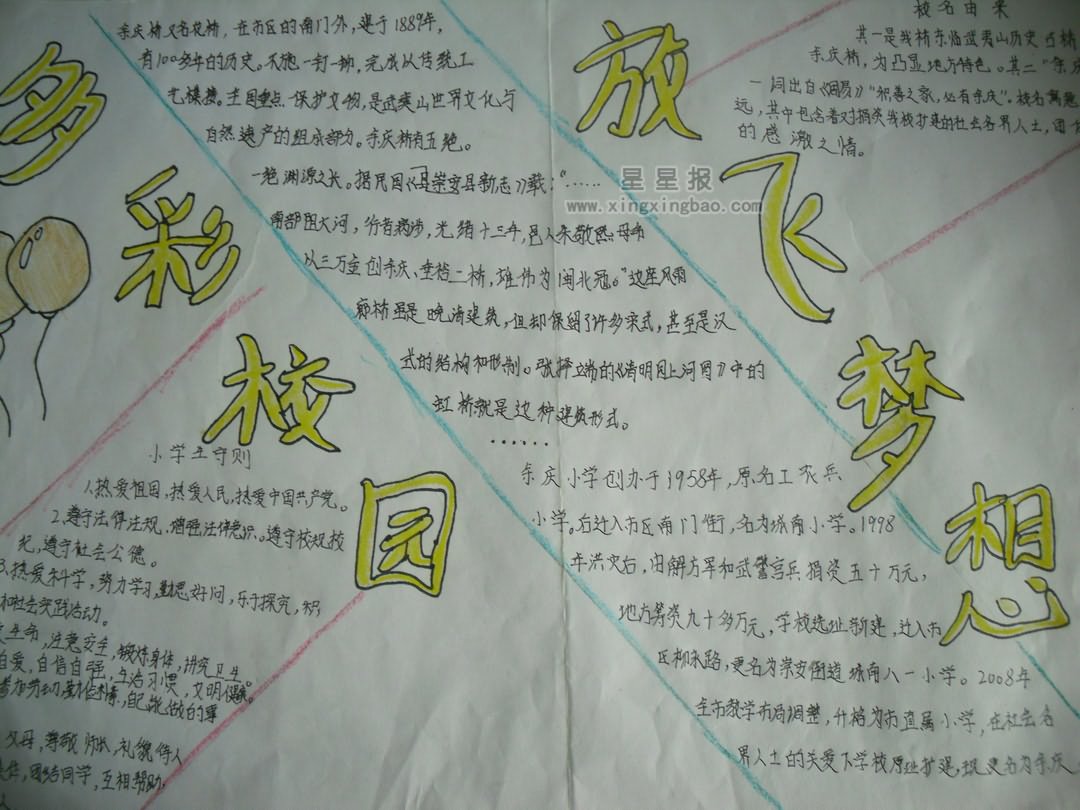 多彩校园
放飞梦想
余庆桥又名花桥，在市区的南门外，建于1889年，
有100多年的历史。不施一钉一铆，完成以传统工
艺榫接。全国重点保护文物，是武夷山世界文化与
自然遗产的组成部分。余庆桥有五绝。
一绝渊源之长。据民国《县崇安县新志》载："……
南部阻大河，行者病涉，光绪十三年，邑人朱敬熙
以三万金创余庆、垂裕二桥，雄伟为闽北冠。"这座风雨
廊桥虽是晚清建筑，但却保留了许多宋式，甚至是汉
式的结构和形制。张择端的《清明上河图》中的
虹桥就是这种建筑形式。
……
星星报
www.xingxingbao.com
校名由来
其一是我桥东临武夷山历史古桥
余庆桥，为凸显地方特色。其二"余庆
一词出自《周易》"积善之家，必有余庆"。校名寓意
远，其中包含着对捐资我校扩建的社会各界人士，团
的感激之情。
小学生守则
1.热爱祖国，热爱人民，热爱中国共产党。
2.遵守法律法规，增强法律意识。遵守校规校
纪，遵守社会公德。
3.热爱科学，努力学习，勤思好问，乐于探究，积
和社会实践活动。
生命，注意安全，锻炼身体，讲究卫生。
自爱，自信自强，生活习惯，文明健康。
参加劳动，勤俭朴素，自己能做的事
父母，尊敬师长，礼貌待人
集体，团结同学，互相帮助，
人
余庆小学创办于1958年，原名工农兵
小学。后迁入市区南门街，名为城南小学。1998
年洪灾后，由解方军和武警官兵捐资五十万元，
地方筹资九十多万元，学校选址新建，迁入市
区柳永路，更名为崇安街道城南八一小学。2008年
全市教学布局调整，升格为市直属小学，在社会各
界人士的关爱下学校原址扩建，现更名为余庆